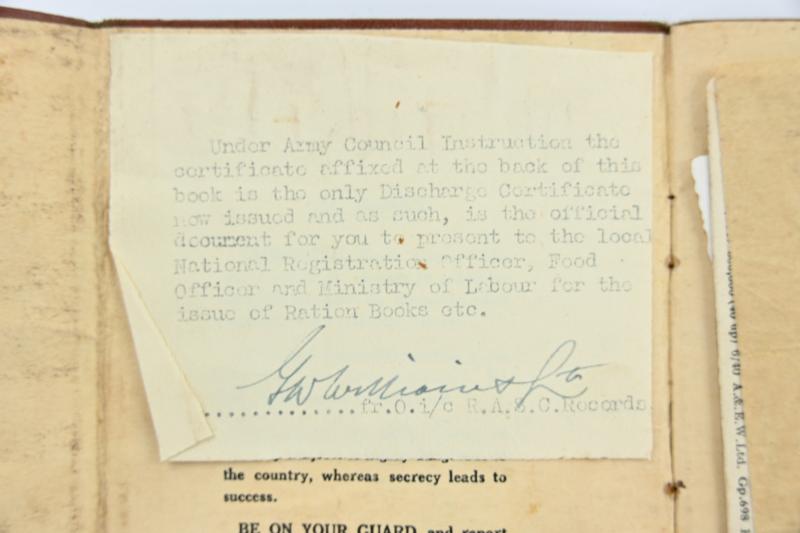 Under Army Council Instruction the
certificate affixed at the back of this
book is the only Discharge Certificate
now issued and as such, is the official
document for you to present to the local
National Registration Officer, Food
Officer and Ministry of Labour for the
issue of Ration Books etc.
fr.O.i/c R.A.S.C.Records
the country, whereas secrecy leads to
success.
BE ON YOUR GUARD and report
6/40 A.& E.W.Ltd. Gp.698